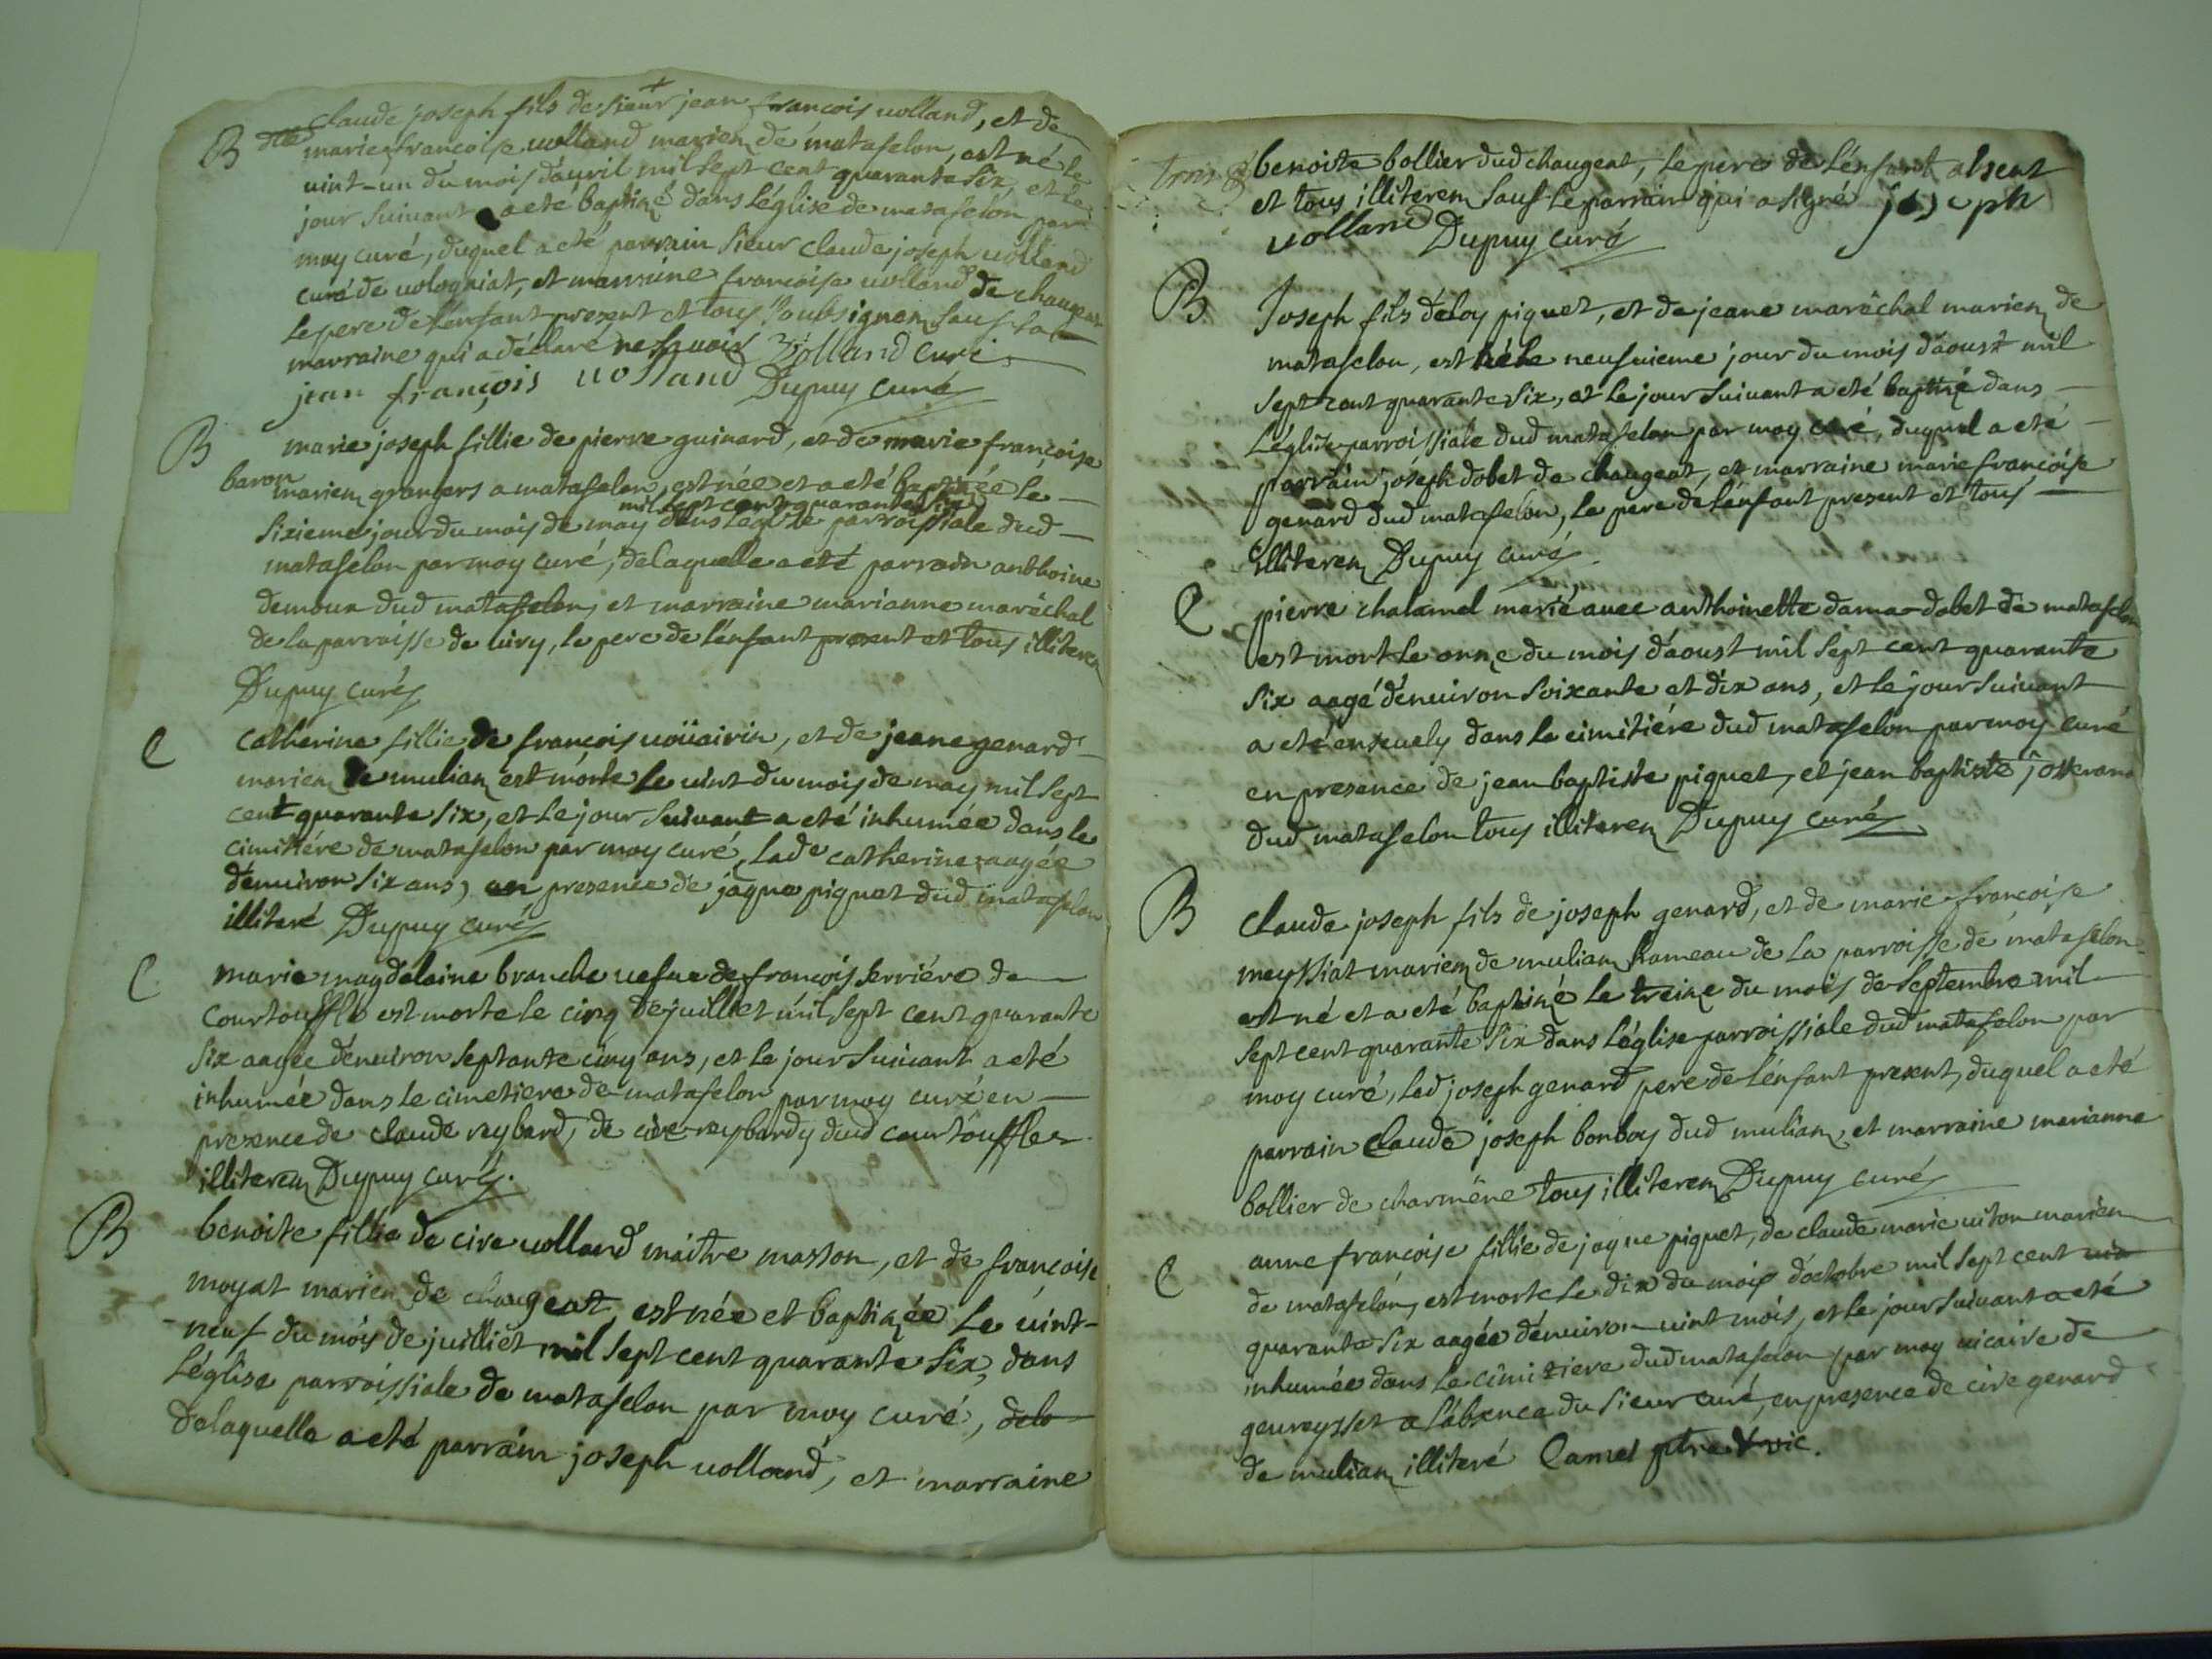 B claude joseph fils de sieur jean francois uolland, et de
dlle marie francoise uolland mariez de matafelon, est né le
uint-un du mois d'auril mil sept cent quarante six, et le
jour suiuant a eté baptizé dans l'église de matafelon par
moy curé, duquel a eté parrain sieur claude joseph uolland
curé de uolognat, et marraine francoise uolland de changeat
le pere de l'enfant present et tous soubsignez sauf la
marraine qui a déclaré ne scauoir Volland curé
jean françois uolland Dupuy curé
B marie joseph fillie de pierre guinard, et de marie francoise
baron mariez grangers a matafelon, est née et a eté baptizée le
mil sept cent quarante six
sixieme jour du mois de may dans l'église parroissiale dud
matafelon par moy curé, delaquelle a eté parrain anthoine
demoux dud matafelon, et marraine marianne maréchal
de la parroisse de uiry, le pere de l'enfant present et tous illiterez
Dupuy curé
C catherine fillie de francois uoüairin, et de jeane genard
mariez de mulian est morte le uint du mois de may mil sept
cent quarante six, et le jour suiuant a eté inhumée dans le
cimitiére de matafelon par moy curé, lade catherine aagée
d'enuiron six ans, en presence de jaque piquet dud matafelon
illiteré Dupuy curé
C marie magdelaine branche uefue de francois ferriére de
courtouffle est morte le cinq de juilliet mil sept cent quarante
six aagée d'enuiron septante cinq ans, et le jour suiuant a eté
inhumée dans le cimetiere de matafelon par moy curé en
presence de claude reybard, de cire reybard, dud courtouffle
illiterez Dupuy curé.
B benoite fillie de cire uolland maître masson, et de francoise
moyat mariez de changeat, est née et baptizée le uint-
neuf du moys de juilliet mil sept cent quarante six, dans
l'église parroissiale de matafelon par moy curé, dela
delaquelle a eté parrain joseph uolland, et marraine
benoite bollier dud changeat, le pere de l'enfant absent
et tous illiterez sauf le parrain qui a signé joseph
uolland Dupuy curé
B Joseph fils d'eloy piquet, et de jeane maréchal mariez de
matafelon, est né le neufuieme jour du mois d'aoust mil
sept cent quarante six, et le jour suiuant a eté baptizé dans
l'église parroissiale dud matafelon par moy curé, duquel a eté
parrain joseph dobet de changeat, et marraine marie francoise
genard dud matafelon, le pere de l'enfant present et tous
illiterez Dupuy curé
C pierre chalamel marié auec anthoinette dama dobet de matafelon
est mort le onze du mois d'aoust mil sept cent quarante
six aagé d'enuiron soixante et dix ans, et le jour suiuant
a eté enseuely dans le cimitiére dud matafelon par moy curé
en presence de jean baptiste piquet, et jean baptiste josserand
dud matafelon tous illiterez Dupuy curé
B claude joseph fils de joseph genard, et de marie francoise
meyssiat mariez de mulian hameau de la parroisse de matafelon
est né et a eté baptizé le treize du mois de septembre mil
sept cent quarante six dans l'église parroissiale dud matafelon par
moy curé, led joseph genard pere de l'enfant present, duquel a eté
parrain claude joseph bonboy dud mulian, et marraine marianne
bollier de charmine tous illiterez Dupuy curé
C anne francoise fillie de jaque piquet, de claude marie uiton mariez
de matafelon, est morte le dix du mois d'octobre mil sept cent
quarante six aagée d'enuiron uint mois, et le jour suiuant a eté
inhumée dans le cimitiere dud matafelon par moy uicaire de
geureysset a l'absence du sieur curé, en presence de cire genard
de mulian illiteré Camel ptre & vic.